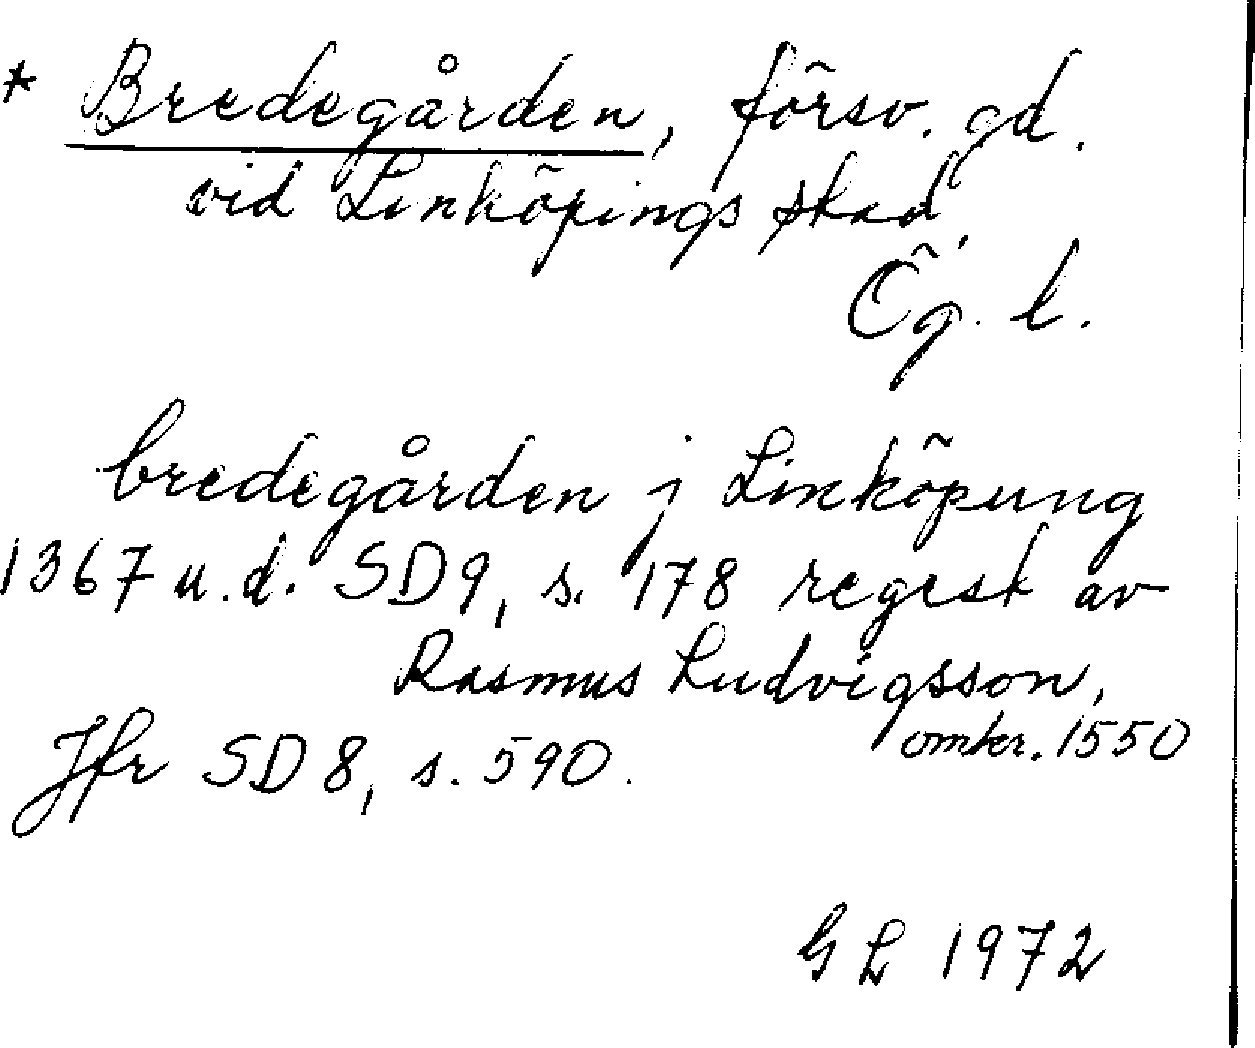 * Bredegården, försv. gd.
vid Linköpings stad,
Ög. l.
bredegården j Linköpung
1367 u.d. SD 9, s. 178 regest av
Rasmus Ludvigsson,
omkr. 1550
Jfr SD 8, s. 590.
GL 1972